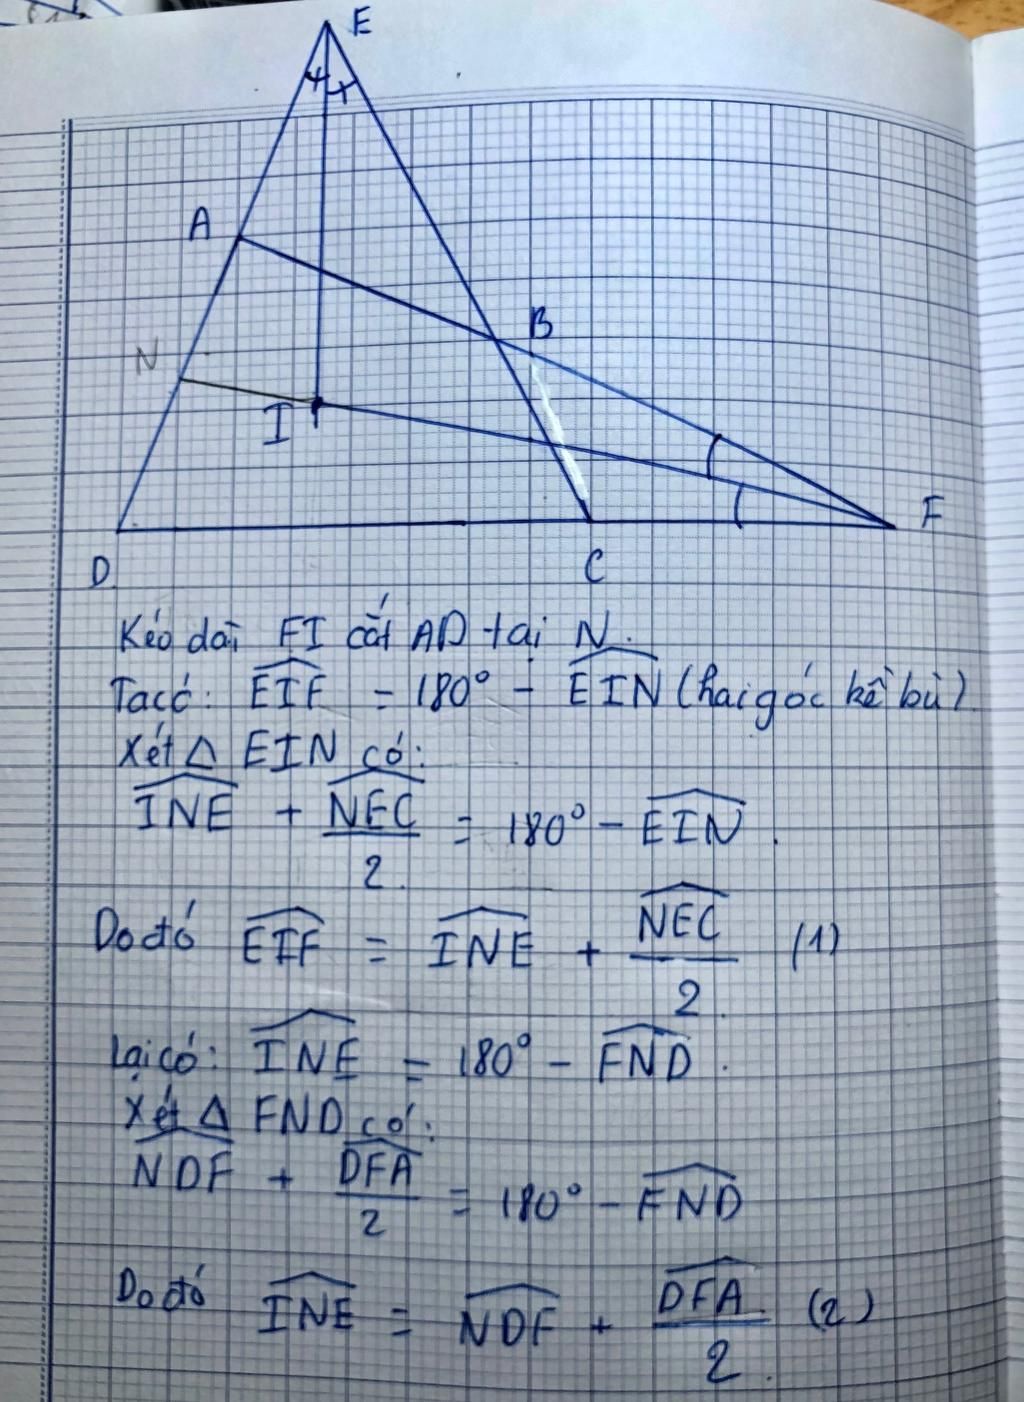 E
A
B
N
I
F
D
C
Kéo dài FI cắt AD tại N.
Ta có: EIF = 180° - EIN (hai góc kề bù)
Xét Δ EIN có:
INE + NEC/2 = 180° - EIN.
Do đó EIF = INE + NEC/2 (1)
Lại có: INE = 180° - FND.
Xét Δ FND có:
NDF + DFA/2 = 180° - FND
Do đó INE = NDF + DFA/2. (2)